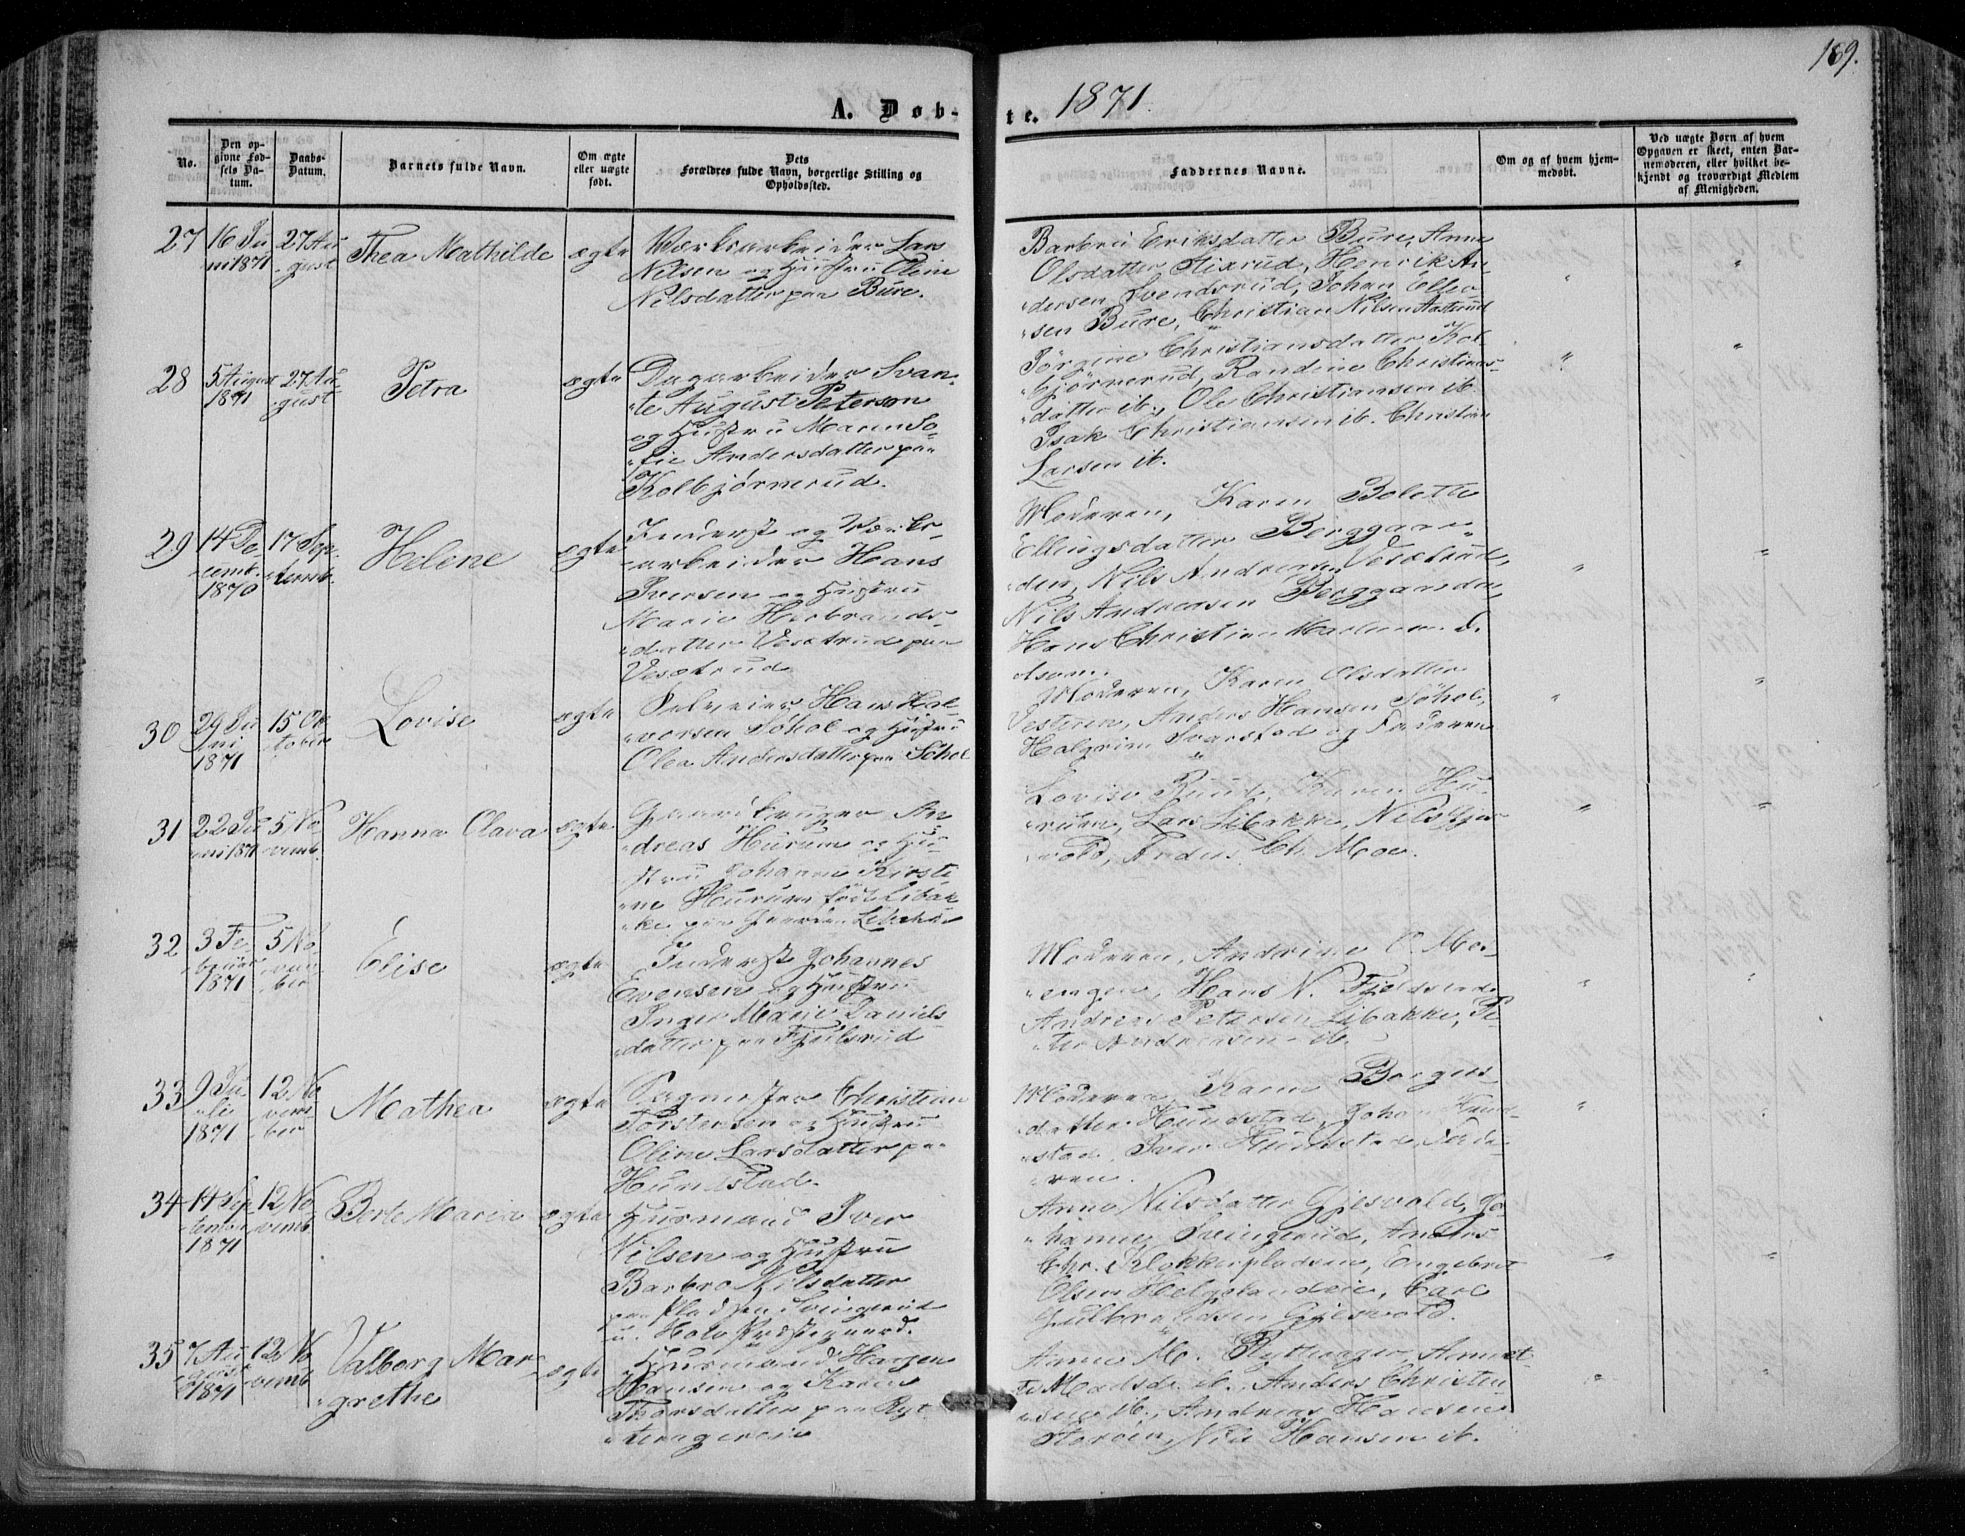 169.
A. Døb-
te. 1871.
No.
Den op-
givne Fød-
sels Da-
tum.
Daabs-
Datum.
Barnets fulde Navn.
Om ægte
eller uægte
født.
Dets
Forældres fulde Navn, borgerlige Stilling og
Opholdssted.
Faddernes Navne.
Om og af hvem hjem-
medøbt.
Ved uægte Børn af hvem
Opgaven er skeet, enten Bar-
nemoderen, eller hvilket be-
kjendt og troværdigt Medlem
af Menigheden.
27
16 Ju
ni 1871
27 Au
gust
Thea Mathilde
ægte
Værksarbeider Lars
Nilsen og Hustru Oline
Nilsdatter paa Bure.
Barbru Eriksdatter Bure, Anne
Olsdatter Stixrud, Henrik An-
dersen Svendsrud, Johan Elle
sen Bure, Christian Nilsen
28
5 August
1871
27 Au-
gust
Petra
ægte
Dagarbeider Svan-
te August Peterson
og Hustru Maren So-
fie Andersdatter paa
Kolbjørnerud.
Jørgine Christiansdatter Kol
bjørnerud, Randine Christians-
datter ib., Ole Christiansen ib.
Isak Christiansen ib. Christian
Larsen ib.
29
14 De-
cemb.
1870
17 Sep-
temb.
Helene
ægte
Inderst og Værks-
arbeider Hans
Iversen og Hustru
Marie Herbrands-
datter Vesætrud paa
Vesætrud
Moderen, Karen Bolette
Ellingsdatter Berggaar-
den, Nils Andreasen Vesætrud,
Nils Andreasen Berggaarden,
Hans Christian
30
29 Ju
ni
1871
15 Ok
tober
Lovise
ægte
Selveier Hans Hal-
vorsen Søhol og Hustru
Olea Andersdatter paa Søhol
Moderen, Karen Olsdatter
Vesteren, Anders Hansen Søhol,
Halgrim Svarstad og Faderen
31
22 Ju
ni 1871
5 No
vemb.
Hanna Olava
ægte
Gaardbruger An
dreas Hurum og Hu-
stru Johanne Kirsti-
ne Hurum født Libak-
ke paa Gaarden Libakke
Lovise Ruud, Karen Hu-
rum, Lars Libakke, Nils Gjes
vold, Anders Ch. Moe.
32
3 Fe-
bruar
1871
5 No
vem-
ber
Elise
ægte
Inderst Johannes
Evensen og Hustru
Inger Marie Daniels-
datter paa Fjulsrud
Moderen, Andrine O. Mo-
engen, Hans N. Fjeldstad,
Andreas Petersen Libakke, Pe-
ter Andreasen ib.
33
9 Ju
lie
1871
12 No
vem-
ber
Mathea
ægte
Sagmester Christian
Torstensen og Hustru
Oline Larsdatter paa
Hundstad.
Moderen, Karen Borgers
datter Hundstad, Johan Hund-
stad, Iver Hundstad, Fade-
ren.
34
14 Sep
tember
1871
12 No
vemb.
Berte Maria
ægte
Husmand Iver
Nilsen og Hustru
Barbro Nilsdatter
paa Pladsen Svingerud
u. Hole Præstegaard.
Anne Nilsdatter Gjesvold, Jo-
hanne Svingerud, Anders
Chr. Klokkerpladsen, Engebret
Olsen Helgelandseie, Carl
Gulbrandsen Gjesvold.
35
7 Au
gust
1871
12 No
vemb.
Valborg Mar-
grethe
ægte
Husmand Hagen
Hansen og Karen
Thorsdatter paa Ryt
teragereie
Anne M. Rytterager, Annet-
te Madsd. ib., Anders Christen-
sen ib., Andreas Hansen
Storøen, Nils Hansen ib.